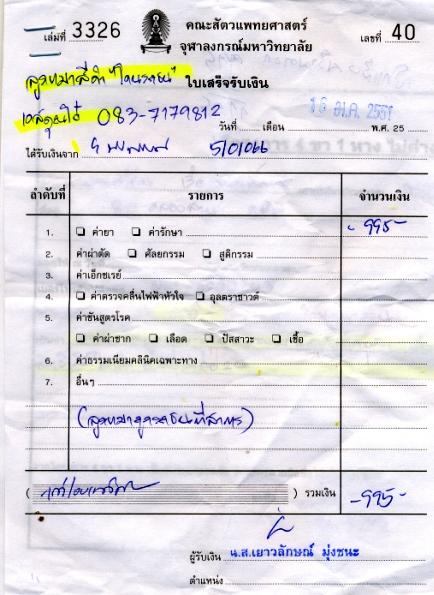 เล่มที่ 3326
คณะสัตวแพทยศาสตร์
จุฬาลงกรณ์มหาวิทยาลัย
เลขที่ 40
ลูกหมาสีดำ
ใบเสร็จรับเงิน
083-7179812
วันที่ เดือน พ.ศ. 25
16 ม.ค. 2551
ได้รับเงินจาก
ลำดับที่ รายการ จำนวนเงิน
1. ค่ายา ค่ารักษา - 995-
2. ค่าผ่าตัด ศัลยกรรม สูติกรรม
3. ค่าเอ็กซเรย์
4. ค่าตรวจคลื่นไฟฟ้าหัวใจ อุลตราซาวด์
5. ค่าชันสูตรโรค
ค่าผ่าซาก เลือด ปัสสาวะ เชื้อ
6. ค่าธรรมเนียมคลินิคเฉพาะทาง
7. อื่นๆ
( ) รวมเงิน -995-
ผู้รับเงิน น.ส.เยาวลักษณ์ มุ่งชนะ
ตำแหน่ง